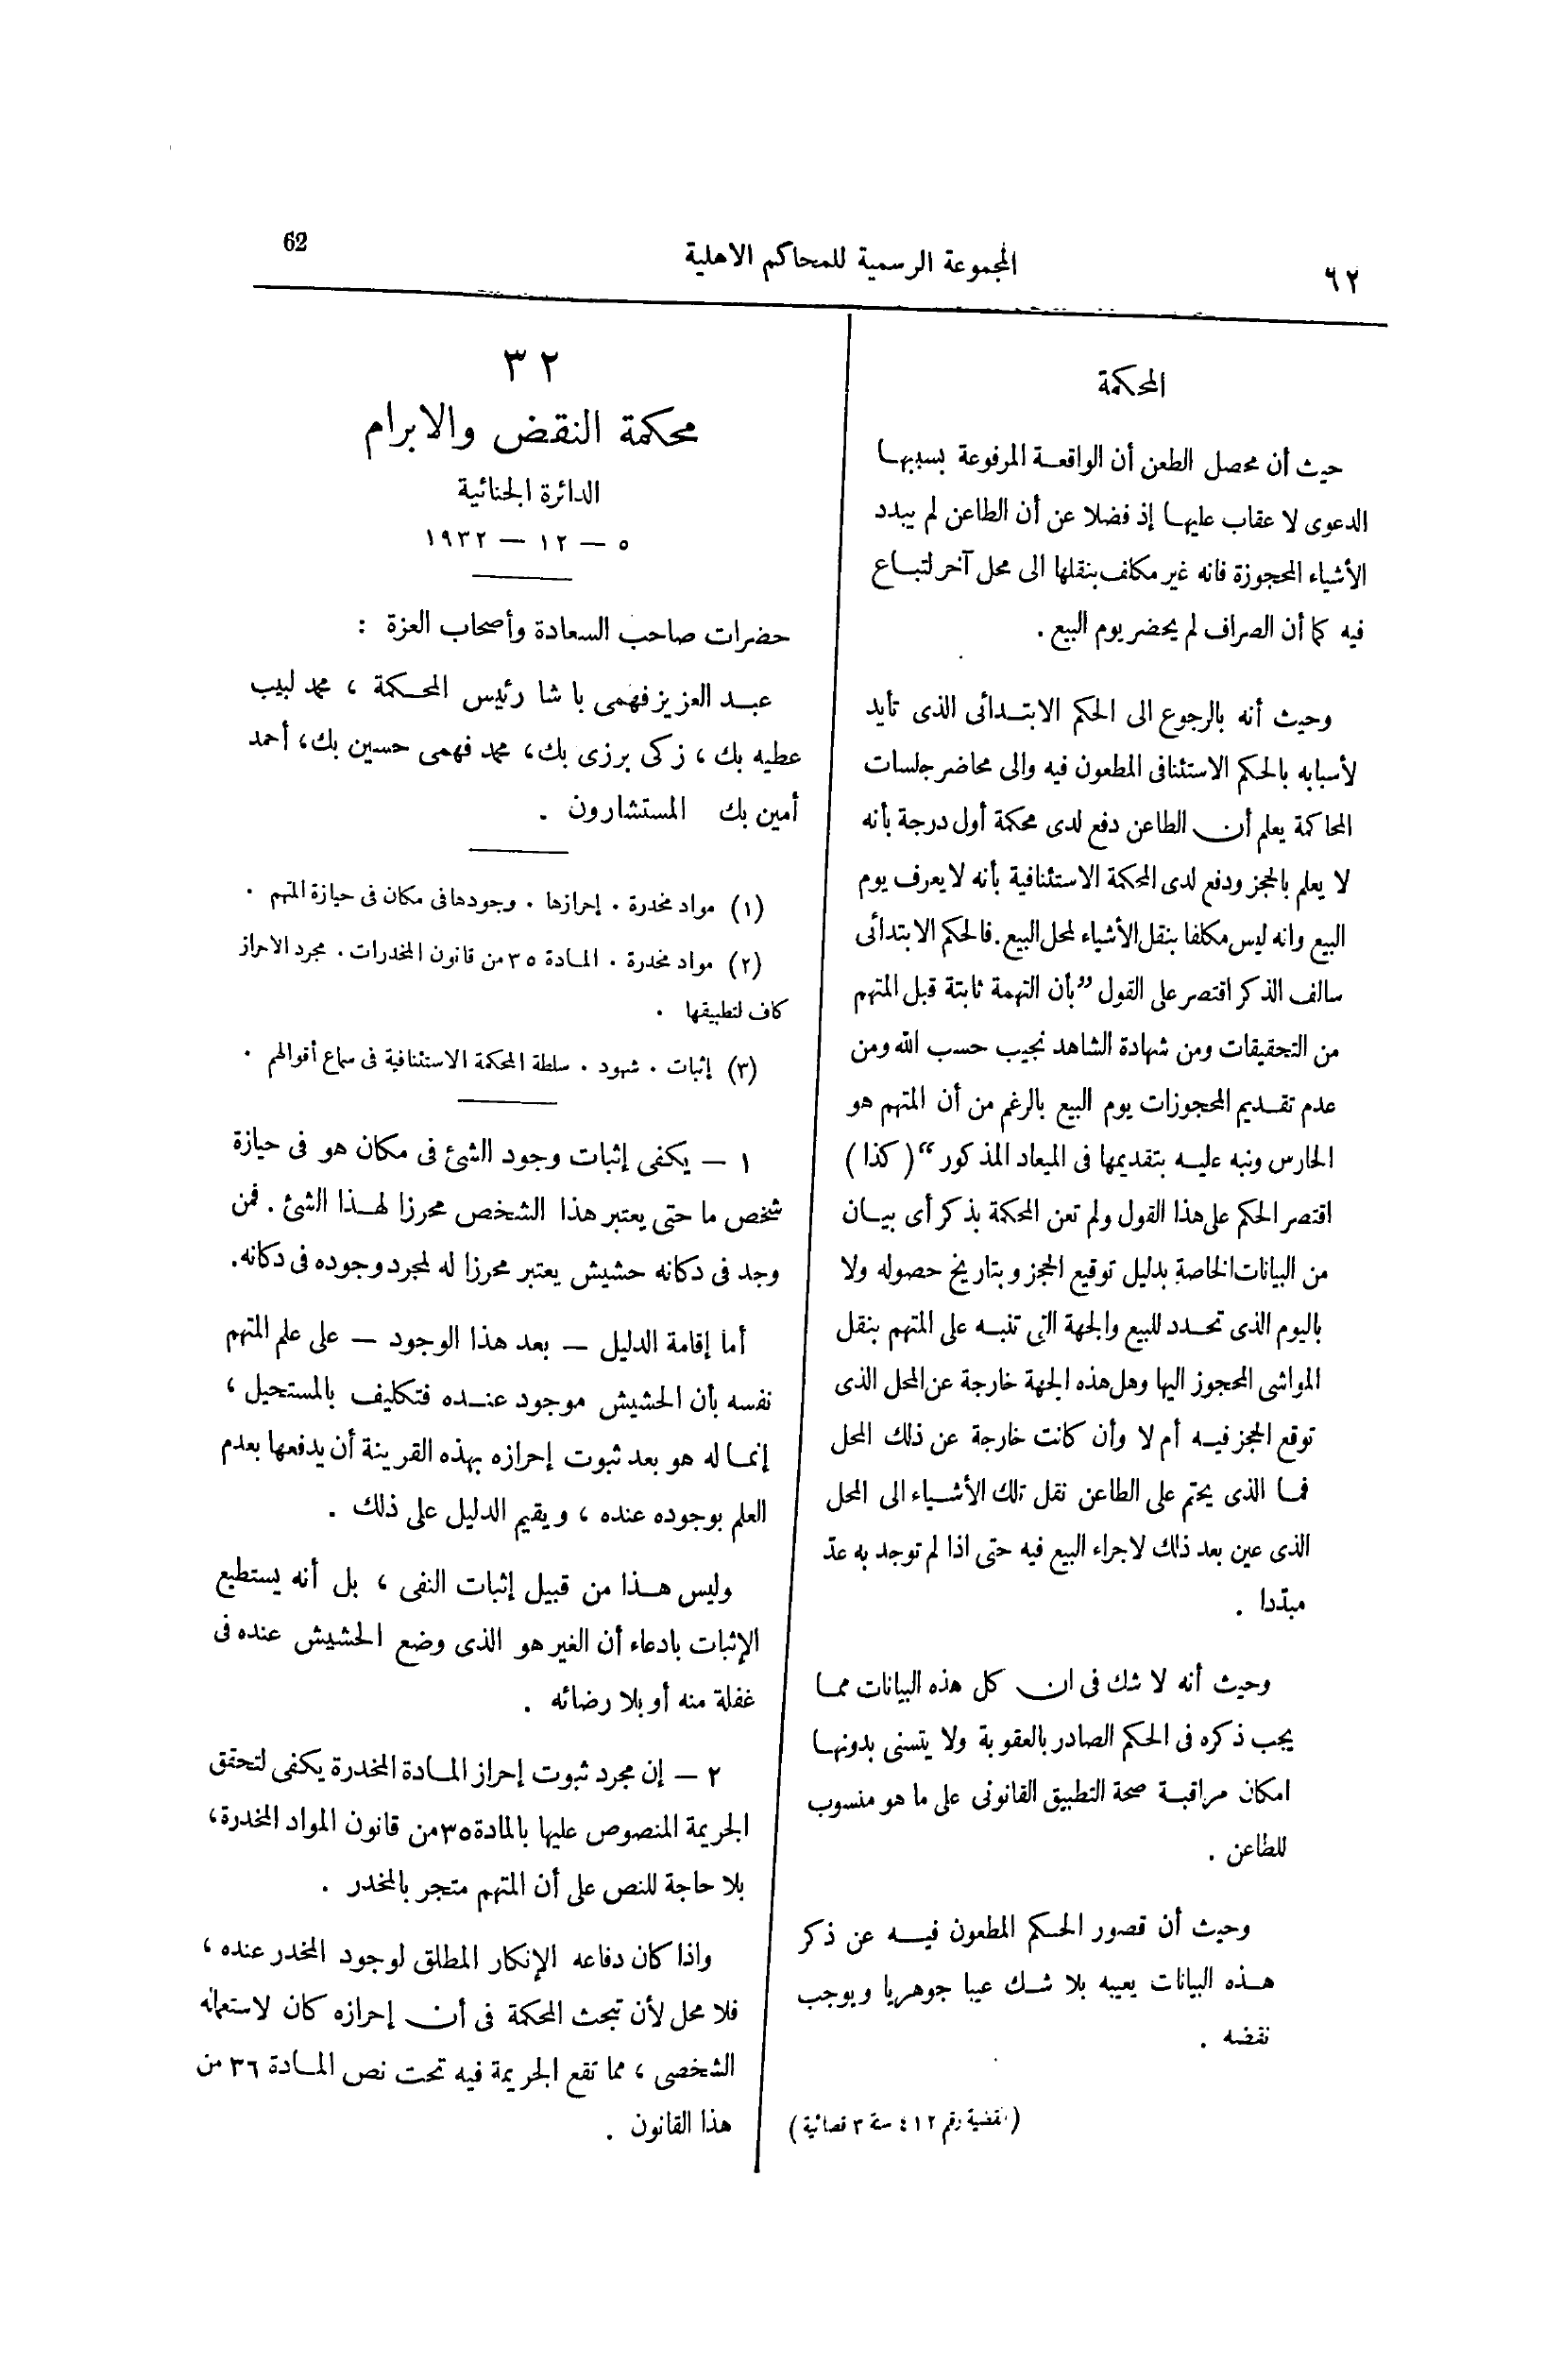 ٦٢
المجموعة الرسمية للمحاكم الاهلية
62
المحكمة
حيث أن محصل الطعن أن الواقعة المرفوعة بسببها
الدعوى لا عقاب عليها إذ فضلا عن أن الطاعن لم يبدد
الأشياء المحجوزة فانه غير مكلف بنقلها الى محل آخر لتباع
فيه كما أن الصراف لم يحضر يوم البيع .
وحيث أنه بالرجوع الى الحكم الابتدائى الذى تأيد
لأسبابه بالحكم الاستئنافى المطعون فيه والى محاضر جلسات
المحاكمة يعلم أن الطاعن دفع لدى محكمة أول درجة بأنه
لا يعلم بالحجز ودفع لدى المحكمة الاستئنافية بأنه لا يعرف يوم
البيع وانه ليس مكلفا بنقل الأشياء لمحل البيع . فالحكم الابتدائى
سالف الذكر اقتصر على القول ”بأن التهمة ثابتة قبل المتهم
من التحقيقات ومن شهادة الشاهد نجيب حسب الله ومن
عدم تقديم المحجوزات يوم البيع بالرغم من أن المتهم هو
الحارس ونبه عليه بتقديمها فى الميعاد المذكور“ (كذا)
اقتصر الحكم على هذا القول ولم تعن المحكمة بذكر أى بيان
من البيانات الخاصة بدليل توقيع الحجز وبتاريخ حصوله ولا
باليوم الذى تحدد للبيع والجهة التى تنبه على المتهم بنقل
المواشى المحجوز اليها وهل هذه الجهة خارجة عن المحل الذى
توقع الحجز فيه أم لا وأن كانت خارجة عن ذلك المحل
فما الذى يحتم على الطاعن نقل تلك الأشياء الى المحل
الذى عين بعد ذلك لاجراء البيع فيه حتى اذا لم توجد به عدّ
مبدّدا .
وحيث أنه لا شك فى ان كل هذه البيانات مما
يجب ذكره فى الحكم الصادر بالعقوبة ولا يتسنى بدونها
امكان مراقبة صحة التطبيق القانونى على ما هو منسوب
للطاعن .
وحيث أن قصور الحكم المطعون فيه عن ذكر
هذه البيانات يعيبه بلا شك عيبا جوهريا ويوجب
نقضه .
(القضية رقم ٤١٢ سنة ٣ قضائية)
٣٢
محكمة النقض والابرام
الدائرة الجنائية
٥ — ١٢ — ١٩٣٢
حضرات صاحب السعادة وأصحاب العزة :
عبد العزيز فهمى باشا رئيس المحكمة ، محمد لبيب
عطيه بك ، زكى برزى بك ، محمد فهمى حسين بك ، أحمد
أمين بك المستشارون .
(١) مواد مخدرة . إحرازها . وجودها فى مكان فى حيازة المتهم .
(٢) مواد مخدرة . المادة ٣٥ من قانون المخدرات . مجرد الاحراز
كاف لتطبيقها .
(٣) إثبات . شهود . سلطة المحكمة الاستئنافية فى سماع أقوالهم .
١ — يكفى إثبات وجود الشئ فى مكان هو فى حيازة
شخص ما حتى يعتبر هذا الشخص محرزا لهذا الشئ . فمن
وجد فى دكانه حشيش يعتبر محرزا له لمجرد وجوده فى دكانه .
أما إقامة الدليل — بعد هذا الوجود — على علم المتهم
نفسه بأن الحشيش موجود عنده فتكليف بالمستحيل ،
إنما له هو بعد ثبوت إحرازه بهذه القرينة أن يدفعها بعدم
العلم بوجوده عنده ، ويقيم الدليل على ذلك .
وليس هذا من قبيل إثبات النفى ، بل أنه يستطيع
الإثبات بادعاء أن الغير هو الذى وضع الحشيش عنده فى
غفلة منه أو بلا رضائه .
٢ — إن مجرد ثبوت إحراز المادة المخدرة يكفى لتحقق
الجريمة المنصوص عليها بالمادة ٣٥ من قانون المواد المخدرة ،
بلا حاجة للنص على أن المتهم متجر بالمخدر .
واذا كان دفاعه الإنكار المطلق لوجود المخدر عنده ،
فلا محل لأن تبحث المحكمة فى أن إحرازه كان لاستعماله
الشخصى ، مما تقع الجريمة فيه تحت نص المادة ٣٦ من
هذا القانون .